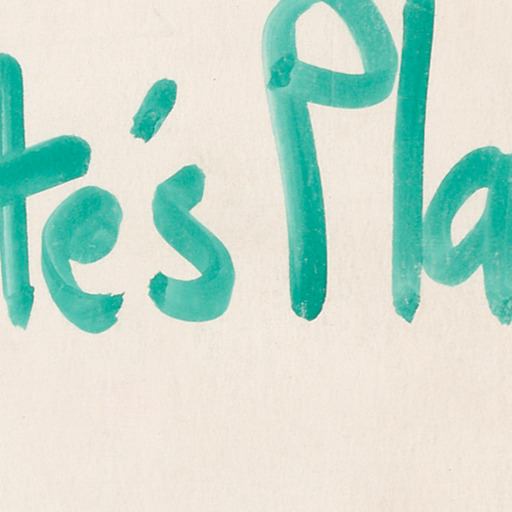 te's Pla